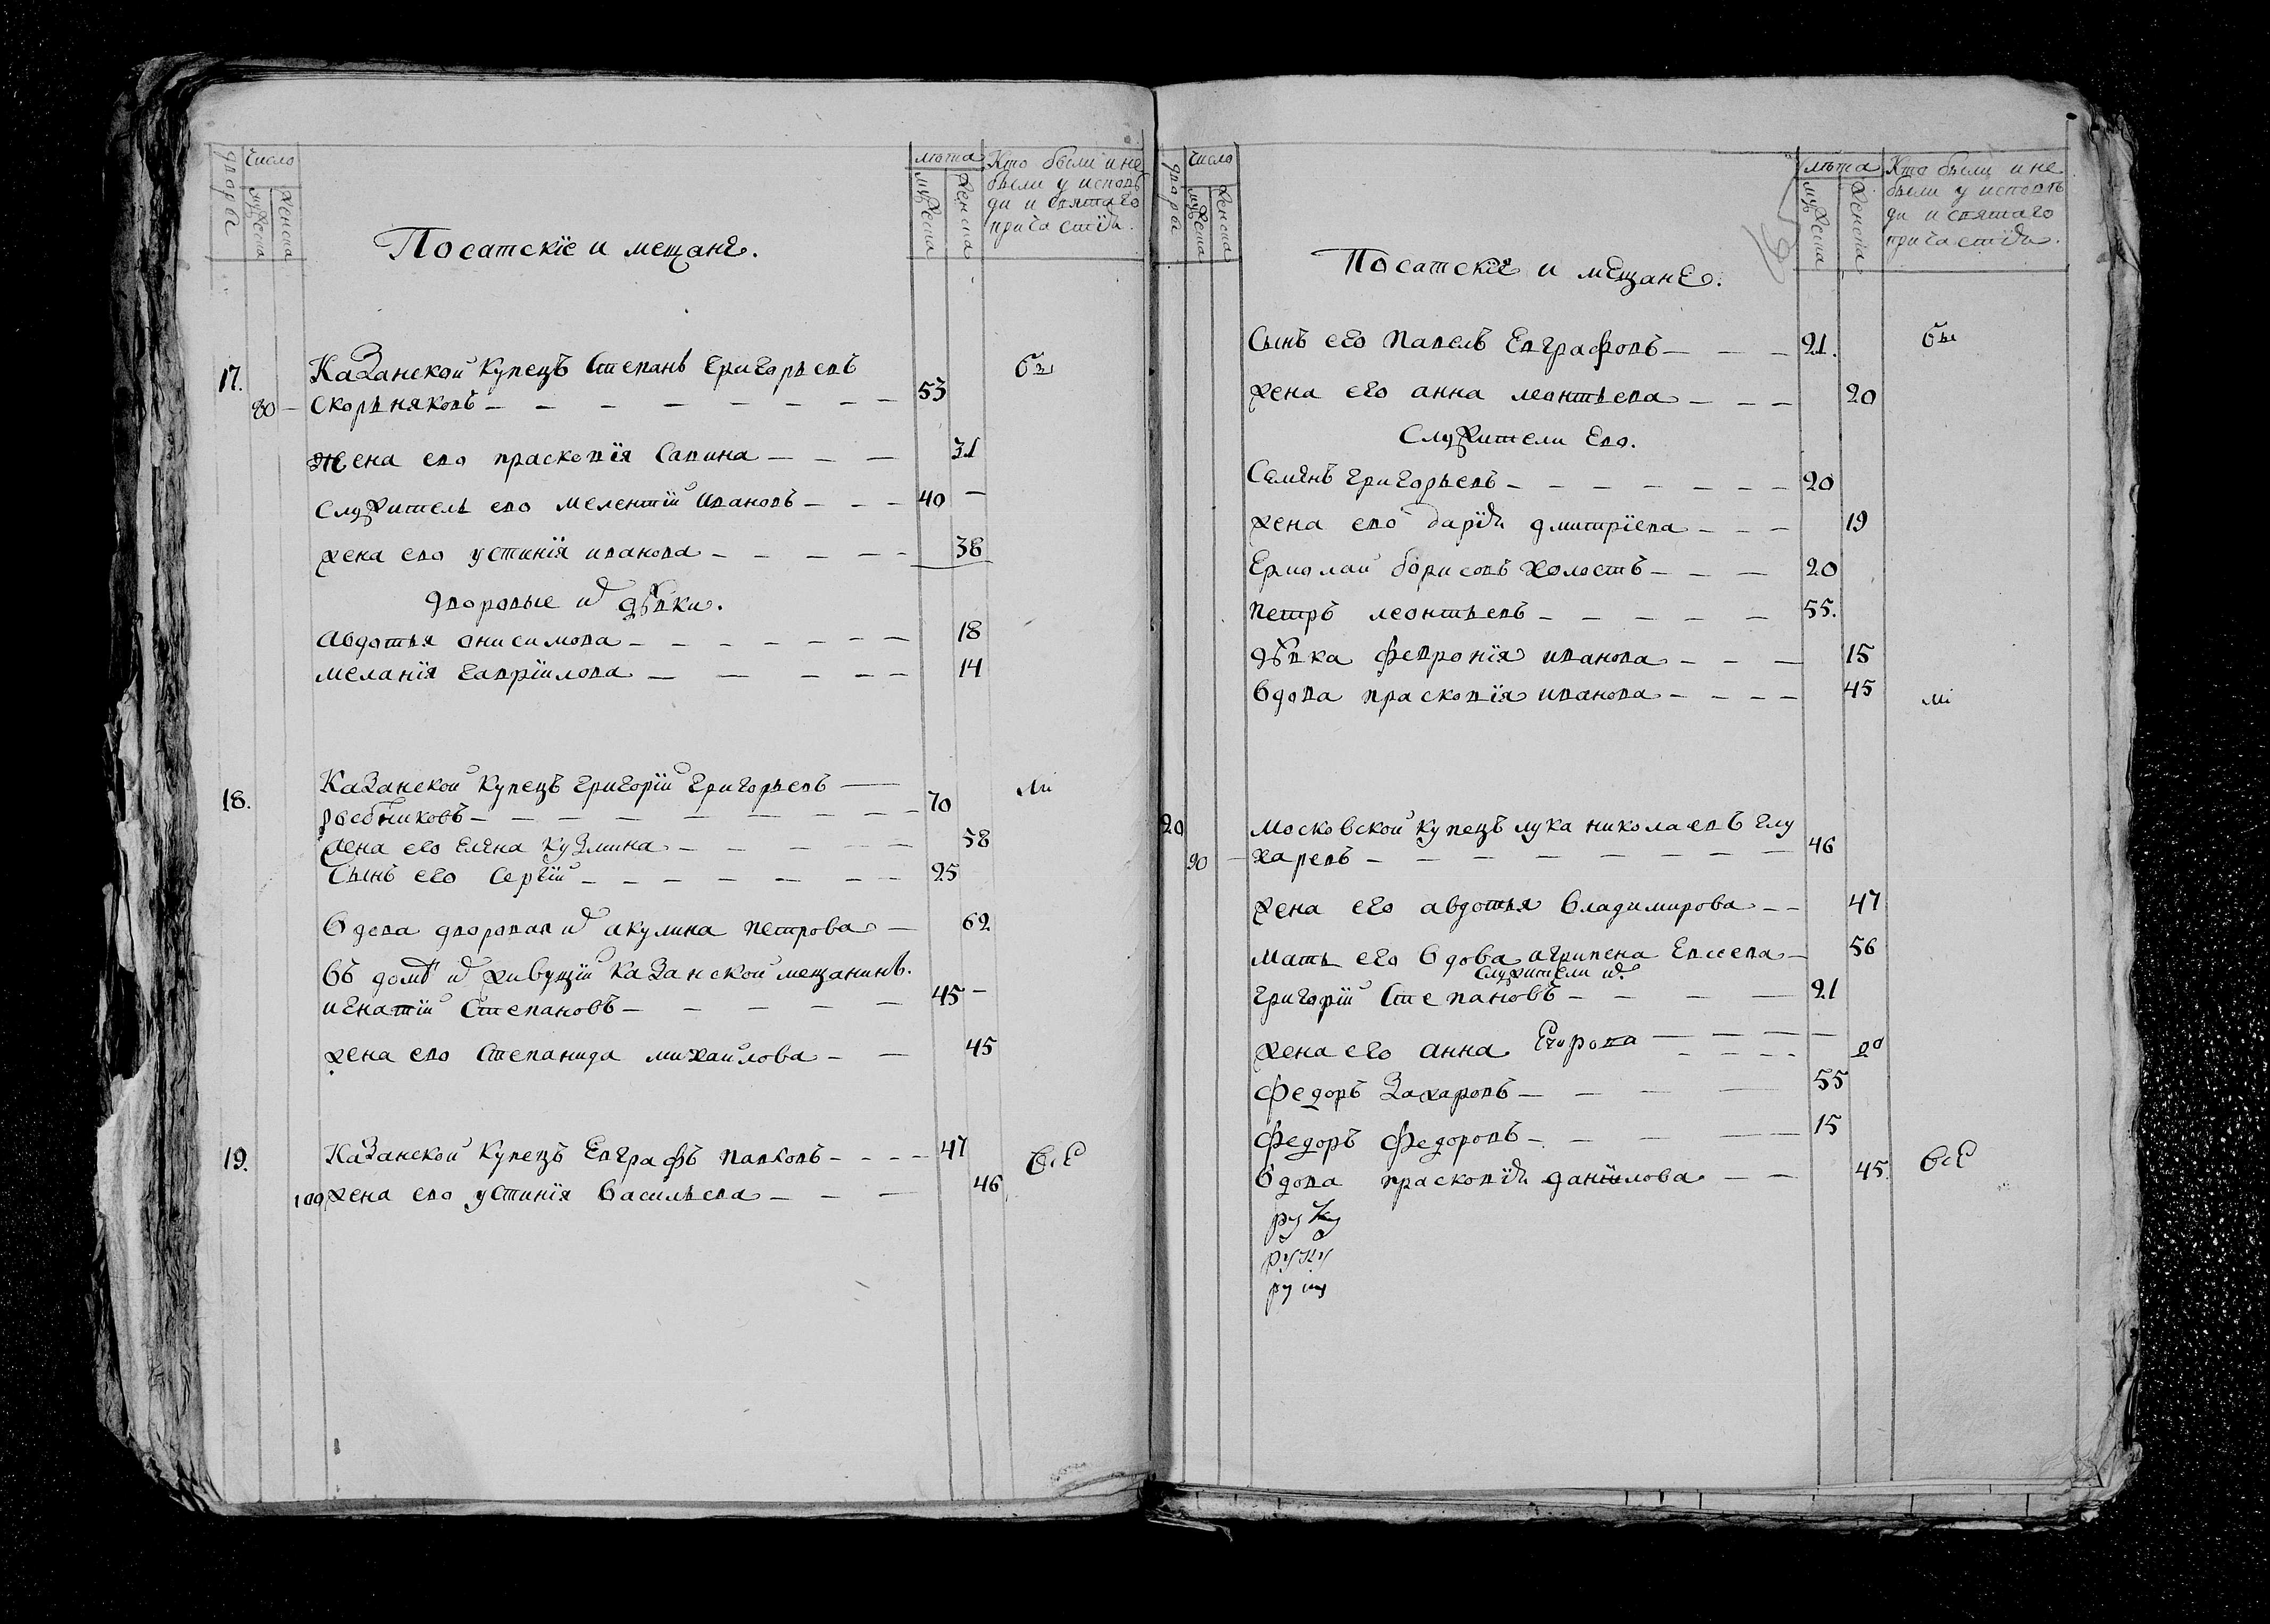 дворы
число
мужеска
женска
Посатскіе и мещане.
лѣта
мужеска
женска
Кто были и не
были у исповѣ
ди и святаго
причастія.
17.
Казанской купецъ Степанъ Григорьевъ
80 Скорняковъ 53
жена ево прасковія Савина 31
служитель ево мелентій Ивановъ 40
жена ево устинія иванова 38
дворовые и дѣвки.
Авдотья онисимова 18
меланія гавріилова 14
18.
Казанской купецъ григорій григорьевъ
рыбниковъ 70
жена его елена кузмина 58
Сынъ его Сергій 25
вдова дворовая акулина петрова 62
въ домѣ живущій казанской мещанинъ.
игнатій Степановъ 45
жена ево Степанида михаилова 45
19.
Казанской купецъ Евграфъ павловъ 47
все
100 жена ево устинія васильева 46
дворы
число
мужеска
женска
Посатскіе и мещане.
лѣта
мужеска
женска
Кто были и не
были у исповѣ
ди и святаго
причастія.
Сынъ его павелъ Евграфовъ 21.
бы
жена его анна леонтьева 20
Служители Ево.
Семенъ григорьевъ 20
жена ево дарія дмитріева 19
Ермолаи борисовъ холостъ 20
петръ леонтьевъ 55.
дѣвка февронія иванова 15
вдова прасковія иванова 45
20
московской купецъ лука николаевъ глу
90 харевъ 46
жена его авдотья владимирова 47
мать его вдова агрипена Евсева 56
служители
григорій Степановъ 21
жена его анна Егорова 20
федоръ Захаровъ 55
федоръ федоровъ 15
вдова прасковія даніилова 45.
все
руку
руку